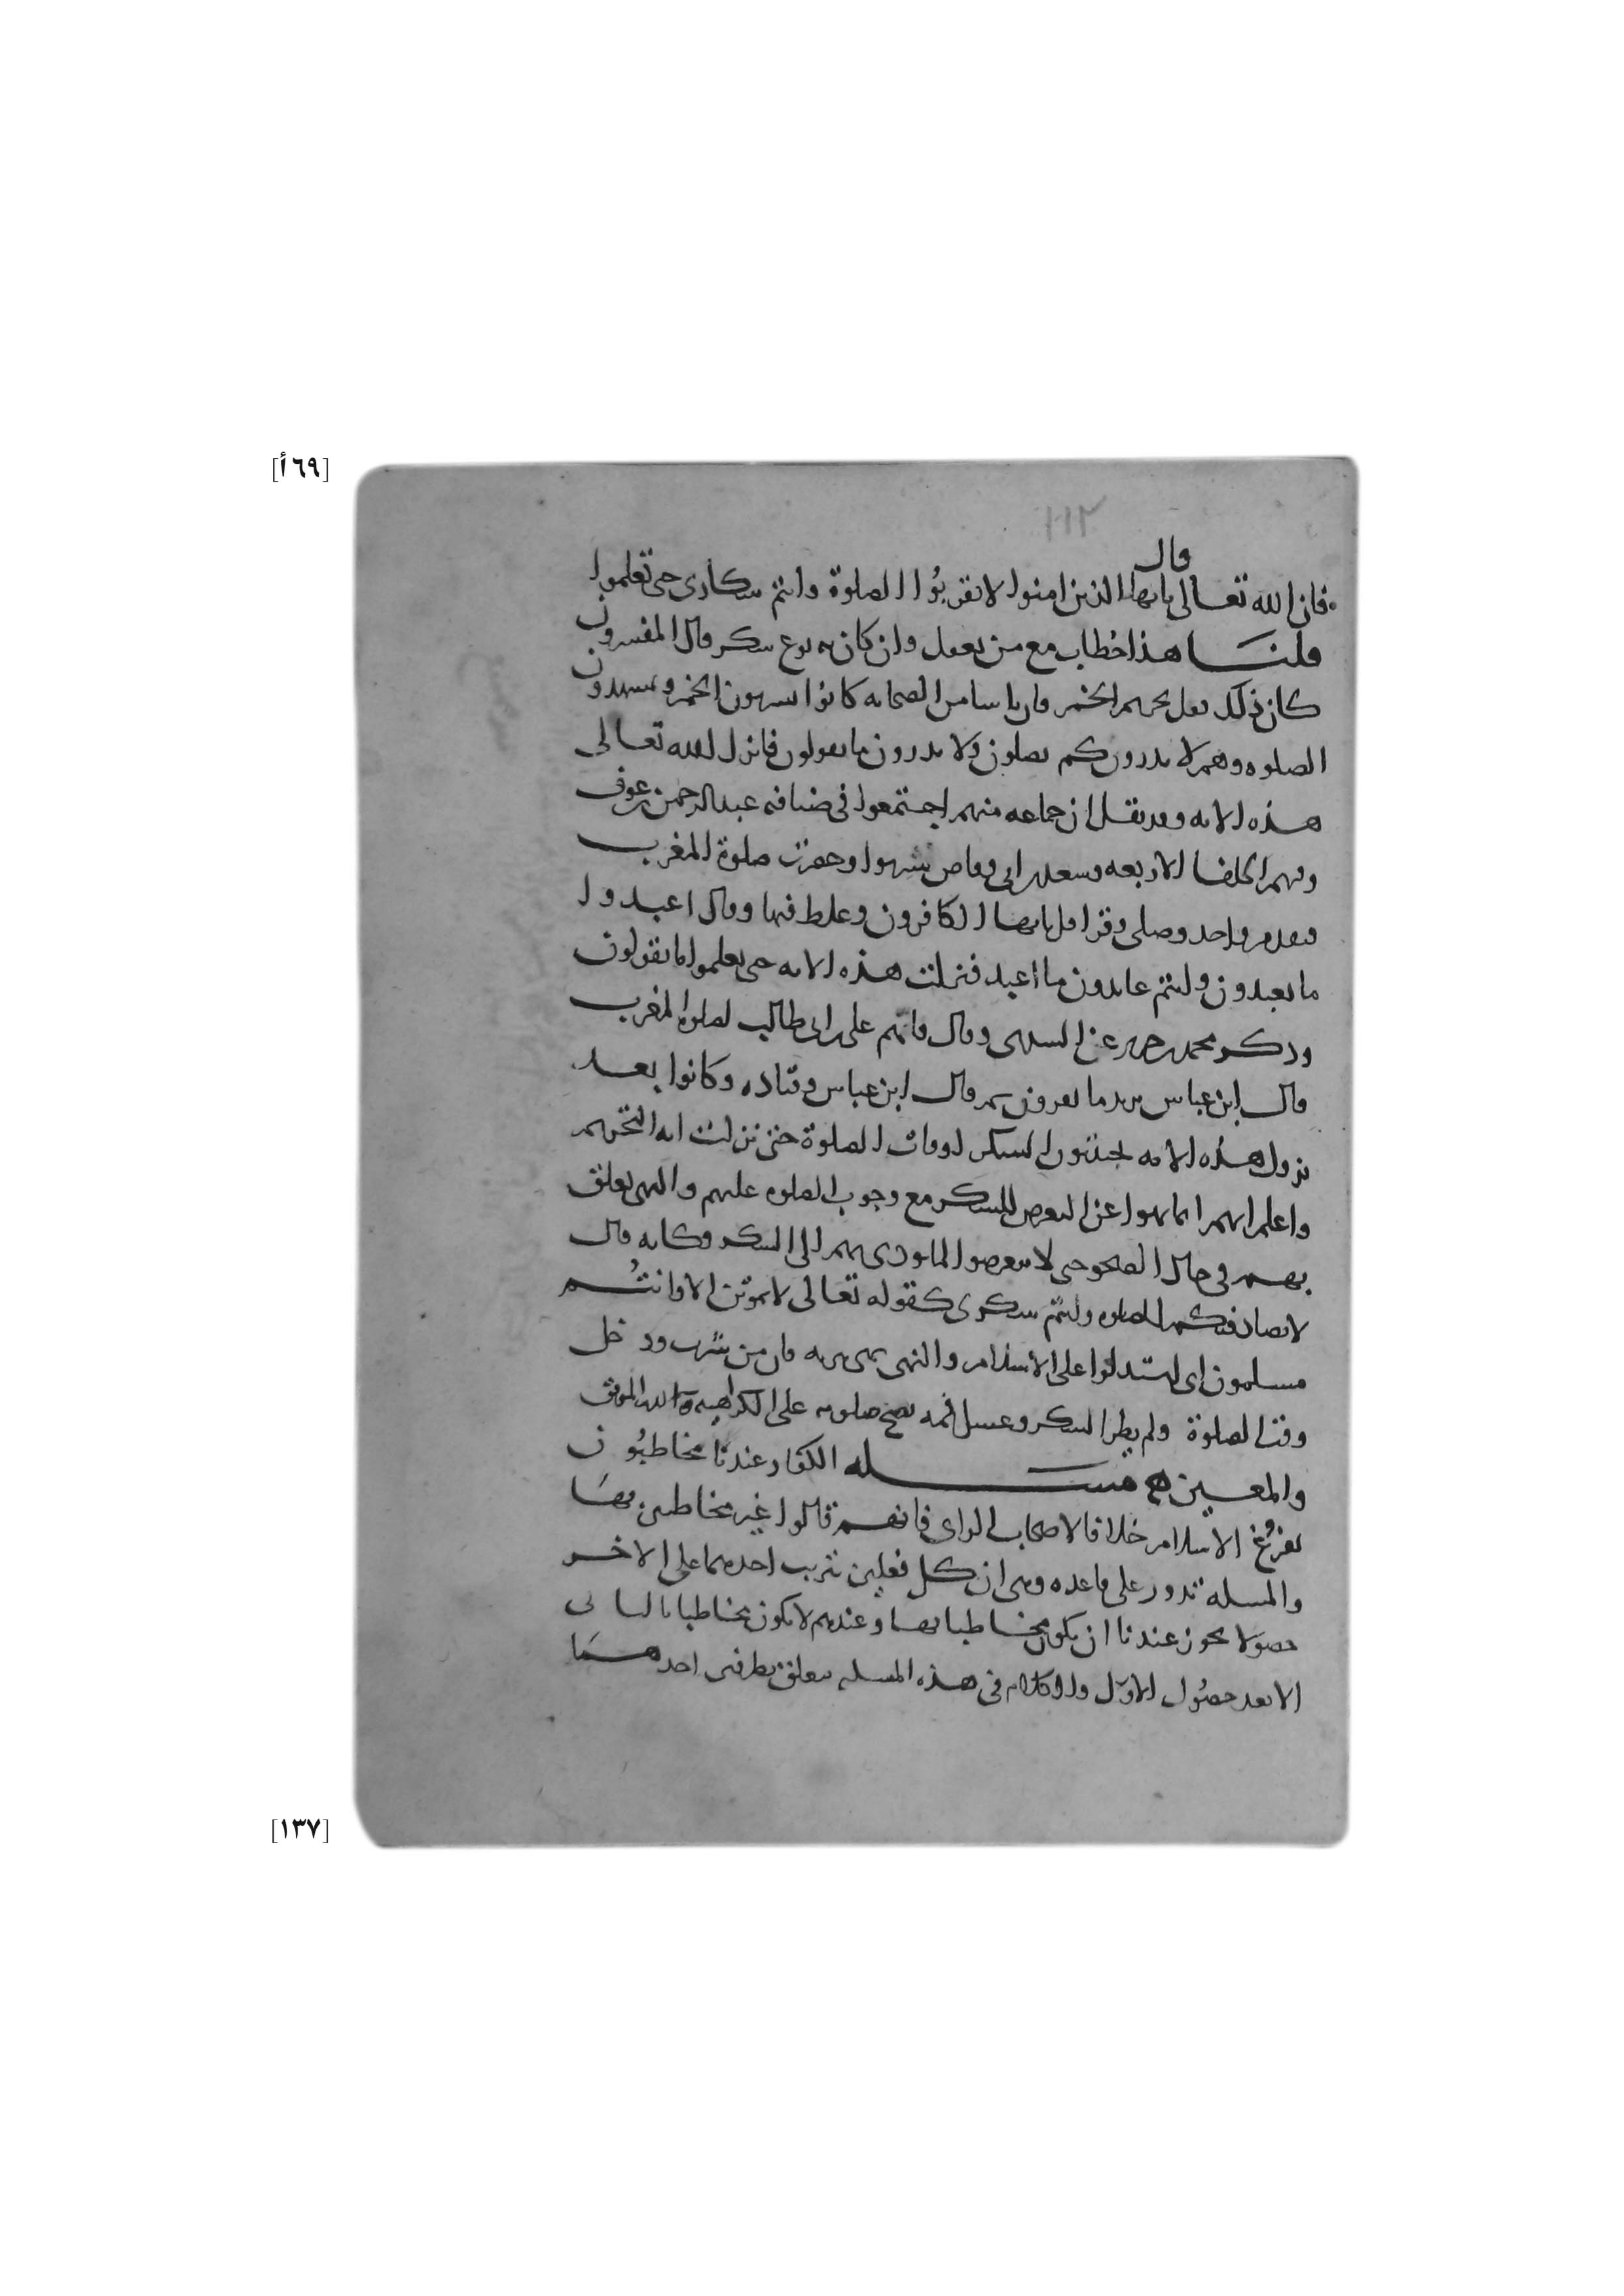 [٦٩أ]
١١٢
قال
فان الله تعالى يايها الذين امنوا لا تقربُوا الصلوة وانتم سكارى حتى تعلموا
قلنَا هذا خطاب مع من يعقل وان كان به نوع سكر قال المفسرون
كان ذلك قبل تحريم الخمر فان ناسا من الصحابه كانوا يشربون الخمر ويشهدون
الصلوه وهم لا يدرون كم يصلون ولا يدرون ما يقولون فانزل الله تعالى
هذه الايه وقد نقل ان جماعه منهم اجتمعوا في ضيافه عبد الرحمن بن عوف
وفيهم الخلفا الاربعه وسعد بن ابي وقاص فشربوا وحضرت صلوة المغرب
فتقدم واحد وصلى وقرا قل يايها الكافرون وغلط فيها وقال اعبدوا
ما تعبدون وانتم عابدون ما اعبد فنزلت هذه الايه حتى تعلموا ما تقولون
وذكر محمد بن جرير عن السدي وقال فامّهم علي بن ابي طالب لصلوه المغرب
قال ابن عباس يريد ما تقرون ثم قال ابن عباس وقتاده وكانوا بعد
نزول هذه الايه يجتنبون السكر اوقات الصلوة حتى نزلت ايه التحريم
واعلم انهم انما نهوا عن التعرض للسكر مع وجوب الصلوه عليهم والنهي تعلق
بهم في حال الصحو حتى لا يتعرضوا لما يودي بهم الى السكر وكانه قال
لا تصادفنكم الصلوه وانتم سكرى كقوله تعالى لا تموتن الا وانتُم
مسلمون اى استدلوا على الاسلام والنهى نهى فان من شرب ودخل
وقت الصلوة ولم يطرا السكر وغسل فمه تصح صلوته على الكراهيه والله الموفق
والمعين مسَله الكفار عندنا مخاطبُون
بفروع الاسلام خلافا لاصحاب الراى فانهم قالوا غير مخاطبين بهَا
والمسله تدور على قاعده وهى ان كل فعلين ترتب احدهما على الاخر
حصولا يجوز عندنا ان يكون مخاطبا بهما وعندهم لا يكون مخاطبا بالثانى
الا بعد حصُول الاول والكلام في هذه المسله يتعلق بطرفين احدهمَا
[١٣٧]